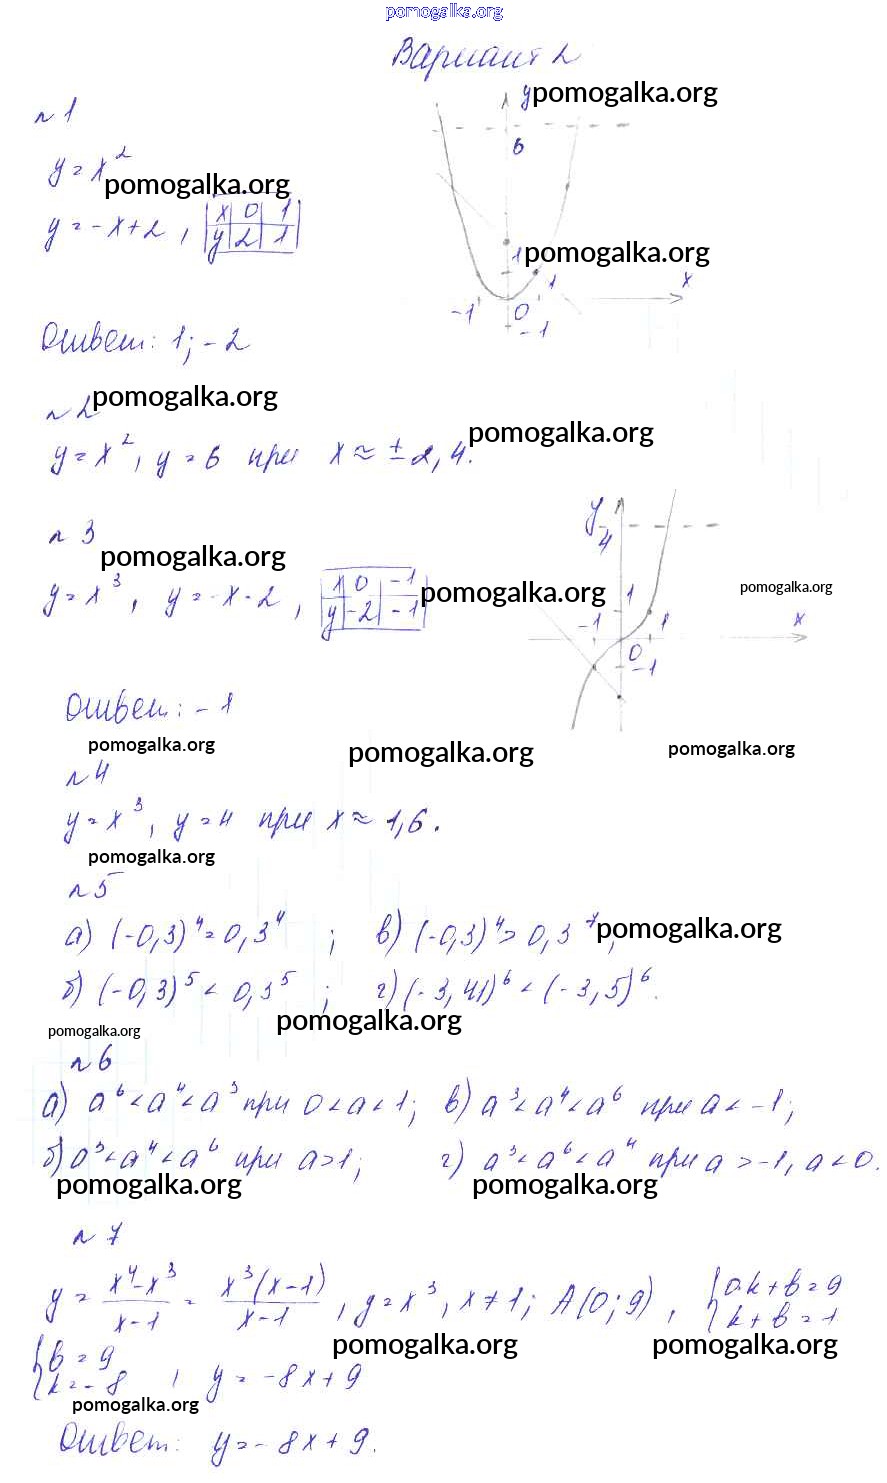 pomogalka.org
Вариант 2
y pomogalka.org
n 1
6
y = x²
pomogalka.org
y = -x+2, | x | 0 | 1 |
| y | 2 | 1 |
1 pomogalka.org
1 x
-1 0
-1
Ответ: 1; -2
pomogalka.org
n 2
pomogalka.org
y = x², y = 6 при x ≈ ± 2,4.
y
4
n 3
pomogalka.org
pomogalka.org
pomogalka.org
y = x³, y = -x-2, | x | 0 | -1 |
| y | -2 | -1 |
1
-1 1 x
0
-1
Ответ: -1
pomogalka.org pomogalka.org pomogalka.org
n 4
y = x³, y = 4 при x ≈ 1,6.
pomogalka.org
n 5
а) (-0,3)⁴ = 0,3⁴ ; в) (-0,3)⁴ > 0,3⁷ pomogalka.org ;
б) (-0,3)⁵ < 0,3⁵ ; г) (-3,41)⁶ < (-3,5)⁶.
pomogalka.org
pomogalka.org
n 6
а) a⁶ < a⁴ < a³ при 0 < a < 1; в) a³ < a⁴ < a⁶ при a < -1;
б) a³ < a⁴ < a⁶ при a > 1; г) a³ < a⁶ < a⁴ при a > -1, a < 0.
pomogalka.org pomogalka.org
n 7
y = (x⁴-x³)/(x-1) = x³(x-1)/(x-1), y = x³, x ≠ 1; A(0; 9), { 0·k + b = 9
k + b = 1
pomogalka.org pomogalka.org
{ b = 9
k = -8 , y = -8x + 9
pomogalka.org
Ответ: y = -8x + 9.